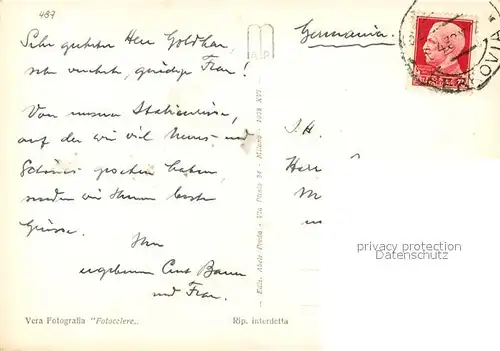 487
Sehr geehrter Herr Goldhan,
sehr verehrte, gnädige Frau!
Von unserer Italienreise,
auf der wir viel Neues und
Schönes gesehen haben,
senden wir Ihnen beste
Grüsse.
Ihr
ergebener Curt Baum
und Frau.
Vera Fotografia "Fotocelere„
Rip. interdetta
Ediz. Abele Preda - Via Plinio 24 - Milano - 1938 XVI
Germania.
S. H.
Herr
M
privacy protection
watermark
DELCAMPE